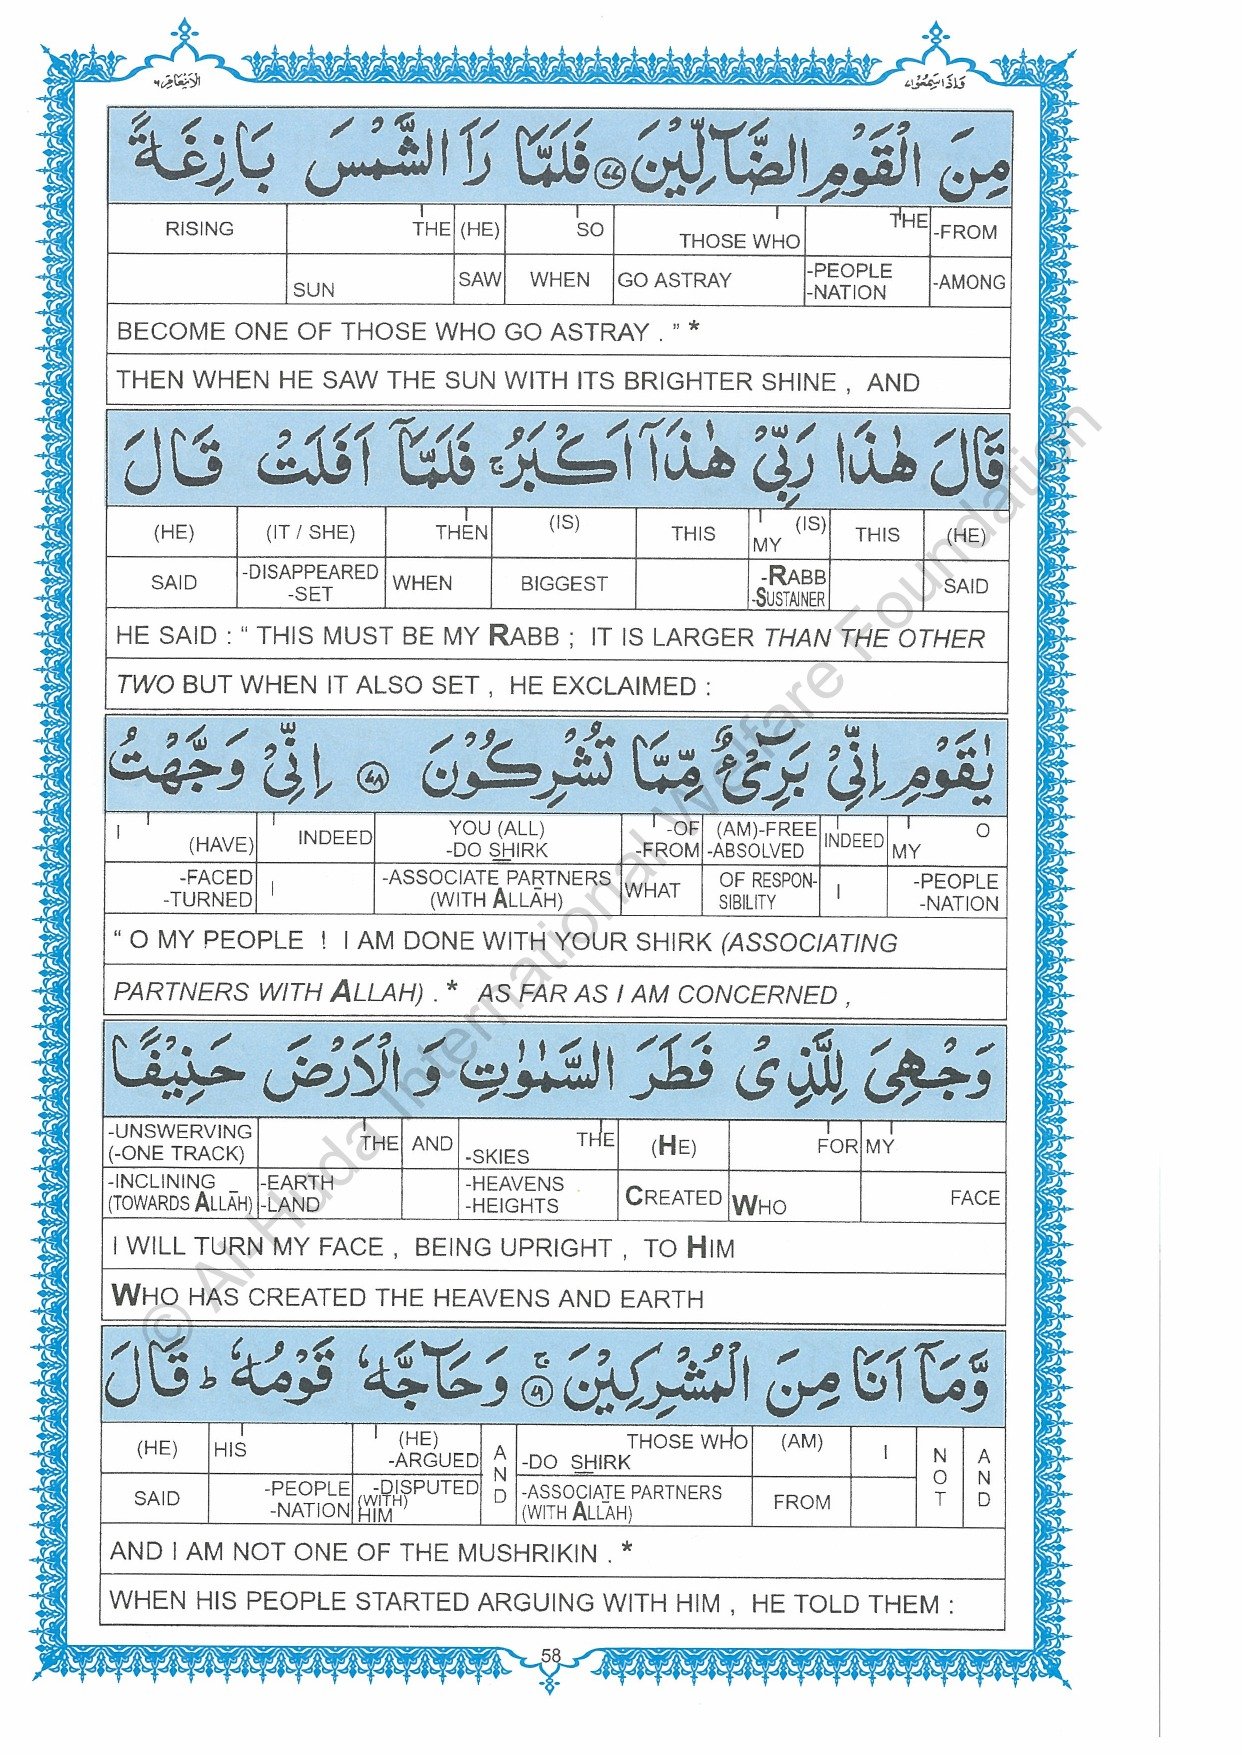 وَاِذَا سَمِعُوْا ٧ الانعام ٦
مِنَ الْقَوْمِ الضَّآلِّيْنَ ٧٧ فَلَمَّا رَاَ الشَّمْسَ بَازِغَةً
RISING THE (HE) SO THOSE WHO THE -FROM
SUN SAW WHEN GO ASTRAY -PEOPLE -NATION -AMONG
BECOME ONE OF THOSE WHO GO ASTRAY . ” *
THEN WHEN HE SAW THE SUN WITH ITS BRIGHTER SHINE , AND
قَالَ هٰذَا رَبِّيْ هٰذَآ اَكْبَرُ ۚ فَلَمَّآ اَفَلَتْ قَالَ
(HE) (IT / SHE) THEN (IS) THIS MY (IS) THIS (HE)
SAID -DISAPPEARED -SET WHEN BIGGEST -RABB -SUSTAINER SAID
HE SAID : “ THIS MUST BE MY RABB ; IT IS LARGER THAN THE OTHER
TWO BUT WHEN IT ALSO SET , HE EXCLAIMED :
يٰقَوْمِ اِنِّيْ بَرِيْٓءٌ مِّمَّا تُشْرِكُوْنَ ٧٨ اِنِّيْ وَجَّهْتُ
I (HAVE) INDEED YOU (ALL) -DO SHIRK -OF -FROM (AM)-FREE -ABSOLVED INDEED MY O
-FACED -TURNED I -ASSOCIATE PARTNERS (WITH ALLĀH) WHAT OF RESPON- SIBILITY I -PEOPLE -NATION
“ O MY PEOPLE ! I AM DONE WITH YOUR SHIRK (ASSOCIATING
PARTNERS WITH ALLAH) . * AS FAR AS I AM CONCERNED ,
وَجْهِيَ لِلَّذِيْ فَطَرَ السَّمٰوٰتِ وَالْاَرْضَ حَنِيْفًا
-UNSWERVING (-ONE TRACK) THE AND THE -SKIES (HE) FOR MY
-INCLINING (TOWARDS ALLĀH) -EARTH -LAND -HEAVENS -HEIGHTS CREATED WHO FACE
I WILL TURN MY FACE , BEING UPRIGHT , TO HIM
WHO HAS CREATED THE HEAVENS AND EARTH
وَّمَآ اَنَا مِنَ الْمُشْرِكِيْنَ ۚ ٧٩ وَحَآجَّهٗ قَوْمُهٗ ؕ قَالَ
(HE) HIS (HE) -ARGUED AND THOSE WHO -DO SHIRK (AM) I NOT AND
SAID -PEOPLE -NATION -DISPUTED (WITH) HIM -ASSOCIATE PARTNERS (WITH ALLĀH) FROM
AND I AM NOT ONE OF THE MUSHRIKIN . *
WHEN HIS PEOPLE STARTED ARGUING WITH HIM , HE TOLD THEM :
58
© Al-Huda International Welfare Foundation